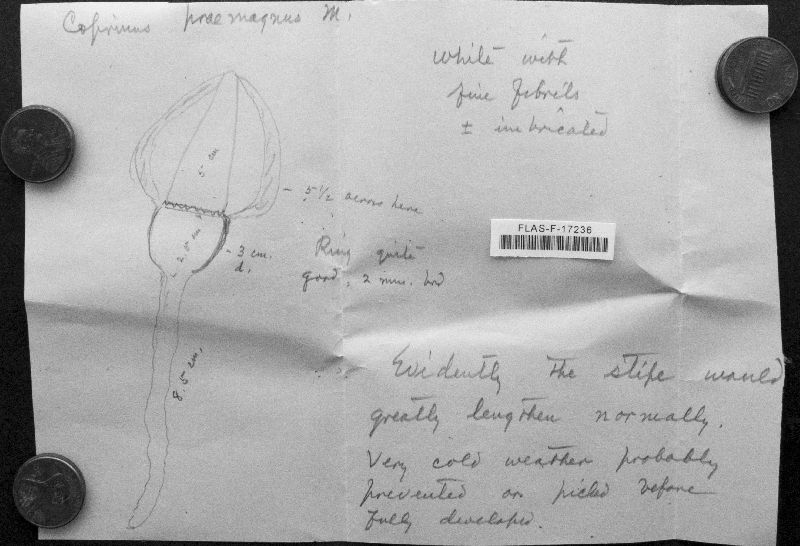 Coprinus praemagnus M.
White with
fine fibrils
± imbricated
5 cm
5 1/2 across here
FLAS-F-17236
2.5 cm
3 cm.
d.
Ring quite
good, 2 mm. brd
8.5 cm.
Evidently the stipe would
greatly lengthen normally.
Very cold weather probably
prevented or picked before
fully developed.